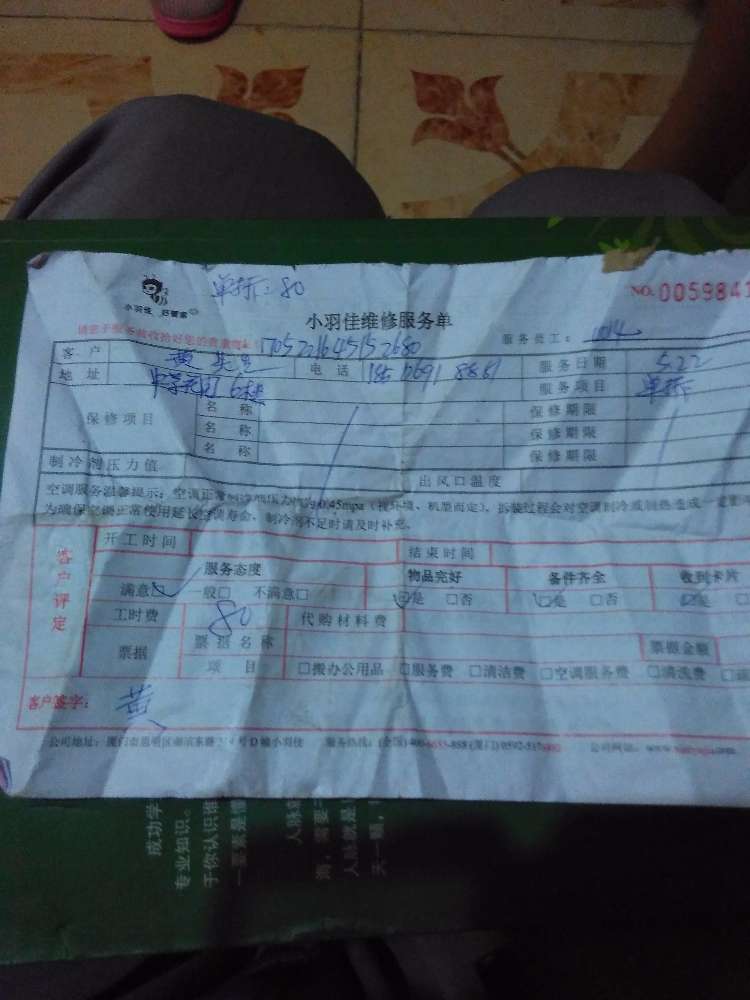 单拆:80
小羽佳 好管家
NO.0059841
小羽佳维修服务单
服务员工:1014
客户 黄先生 电话 服务日期 5.22
地址 6楼 服务项目 单拆
保修项目 名称 保修期限
名称 保修期限
名称 保修期限
制冷剂压力值 出风口温度
空调服务温馨提示:空调正常制冷 0.45mpa(视环境、机型而定),拆装过程会对空调制冷或制热造成一定
为确保空调正常使用延长空调寿命,制冷剂不足时请及时补充。
客户评定
开工时间 结束时间
服务态度 物品完好 备件齐全 收到卡片
满意 一般□ 不满意□ □是 □否 □是 □否 □是
工时费 80 代购材料费
票据 票据名称 票据金额
项目 □搬办公用品 □服务费 □清洁费 □空调服务费 □清洗费
客户签字: 黄
公司地址:厦门市思明区 D幢小羽佳 服务热线:(全国)400- -858(厦门)0592- 公司网站:www.
成功学
专业知识。
于你认识谁
一要素是懂
人脉
人脉就是
天一顿,